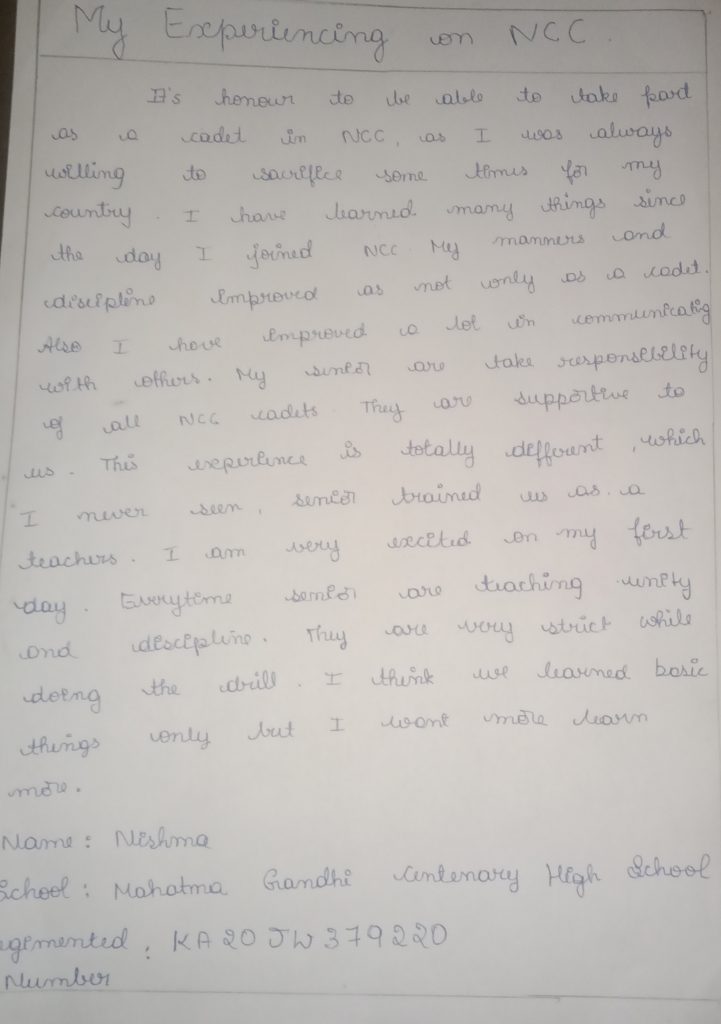 My Experiencing on NCC.
It's honour to be able to take pard
as a cadet in NCC, as I was always
willing to sacrifice some times for my
country. I have learned many things since
the day I joined NCC. My manners and
discipline improved as not only as a cadet.
Also I have improved a lot in communicatig
with others. My senior are take responsibility
of all NCC cadets. They are supportive to
us. This experience is totally different, which
I never seen, senior trained us as a
teachers. I am very excited on my first
day. Everytime senior are teaching unity
and discipline. They are very strict while
doing the drill. I think we learned basic
things only but I want more learn
more.
Name: Nishma
School: Mahatma Gandhi Centenary High School
egimented. KA20JW379220
Number